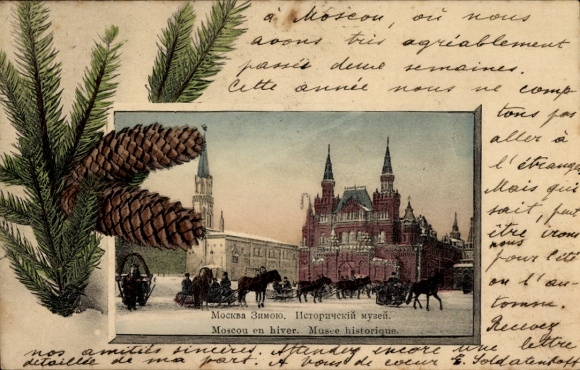 à Moscou, où nous
avons très agréablement
passés deux semaines.
Cette année nous ne comp
tons pas
aller à
l'étranger
Mais qui
sait, peut
être irons
nous
pour l'été
ou l'au-
tomne.
Recevez
nos amitiés sincères. Attendez encore une lettre
détaillée de ma part. A vous de coeur E. Soldatenkoff
Москва Зимою. Историческій музей.
Moscou en hiver. Musée historique.